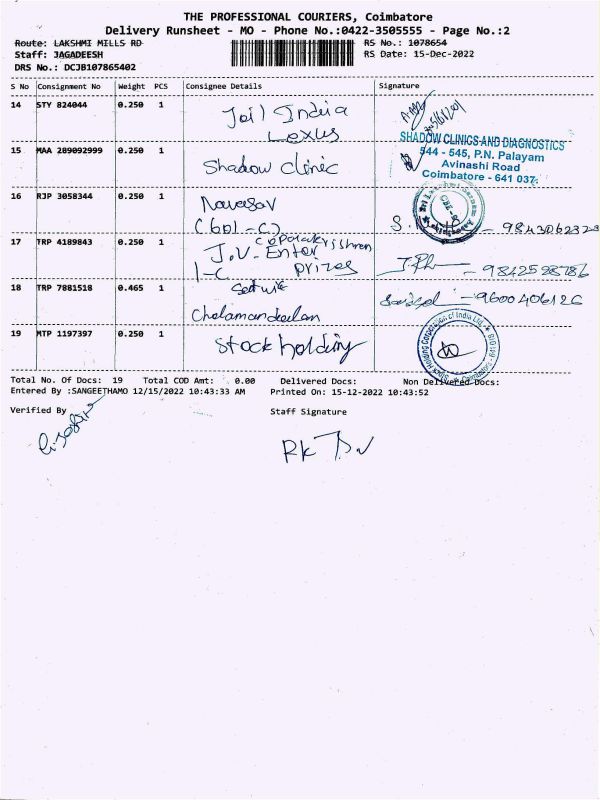 THE PROFESSIONAL COURIERS, Coimbatore
Delivery Runsheet - MO - Phone No.:0422-3505555 - Page No.:2
Route: LAKSHMI MILLS RD RS No.: 1078654
Staff: JAGADEESH RS Date: 15-Dec-2022
DRS No.: DCJB107865402
S No Consignment No Weight PCS Consignee Details Signature
14 STY 824044 0.250 1 India
Lexus
SHADOW CLINICS AND DIAGNOSTICS
15 MAA 289092999 0.250 1 Shadow clinic 544 - 545, P.N. Palayam
Avinashi Road
Coimbatore - 641 037.
16 RJP 3058344 0.250 1
17 TRP 4189843 0.250 1 J.V. Enter
prizes - 9842598786
18 TRP 7881518 0.465 1 - 9600406126
19 MTP 1197397 0.250 1 Stock holding Stock Holding Corporation of India Ltd.
Total No. Of Docs: 19 Total COD Amt: 0.00 Delivered Docs: Non Delivered Docs:
Entered By :SANGEETHAMO 12/15/2022 10:43:33 AM Printed On: 15-12-2022 10:43:52
Verified By Staff Signature